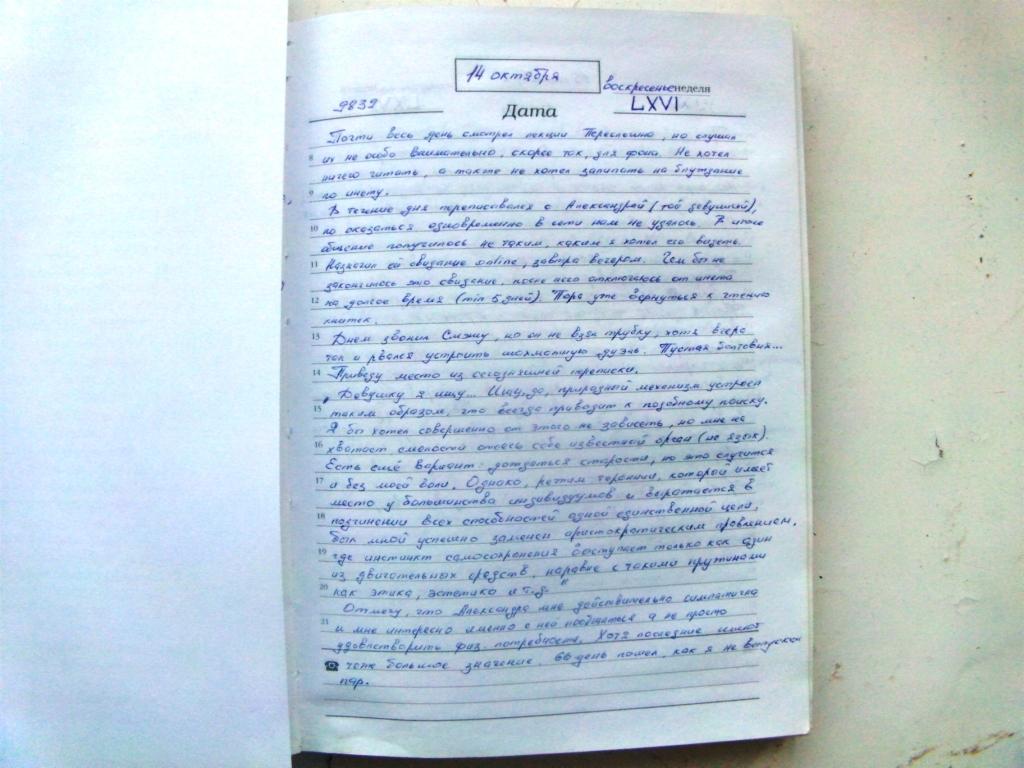 14 октября
воскресенье неделя
9832 Дата LXVI
Почти весь день смотрел лекции Переслегина, но слушал
8 их не особо внимательно, скорее так, для фона. Не хотел
ничего читать, а также не хотел залипать на блуждание
9 по инету.
В течение дня переписывался с Александрой (той девушкой),
10 но оказаться одновременно в сети нам не удалось. В итоге
общение получилось не таким, каким я хотел его видеть.
11 Назначил ей свидание online, завтра вечером. Чем бы не
закончилось это свидание, после него отключаюсь от инета
12 на долгое время (min 5 дней). Пора уже вернуться к чтению
книжек.
13 Днем звонил Смэшу, но он не взял трубку, хотя вчера
так и рвался устроить шахматную дуэль. Пустая болтовня...
14 Приведу место из сегодняшней переписки.
"Девушку я ищу... Ищу, да, природный механизм устроен
15 таким образом, что всегда приводит к подобному поиску.
Я бы хотел совершенно от этого не зависеть, но мне не
16 хватает смелости отсечь себе известный орган (не язык).
Есть ещё вариант: дождаться старости, но это случится
17 и без моей воли. Однако, режим тирании, который имеет
место у большинства индивидуумов и выражается в
18 подчинении всех способностей одной единственной цели,
был мной успешно заменен аристократическим правлением,
19 где инстинкт самосохранения выступает только как один
из двигательных средств, наравне с такими пружинами
20 как этика, эстетика и т.д."
Отмечу, что Александра мне действительно симпатична
21 и мне интересно именно с ней пообщаться а не просто
удовлетворить физ. потребности. Хотя последние имеют
тоже большое значение. 66 день пошел, как я не выпускал
пар.